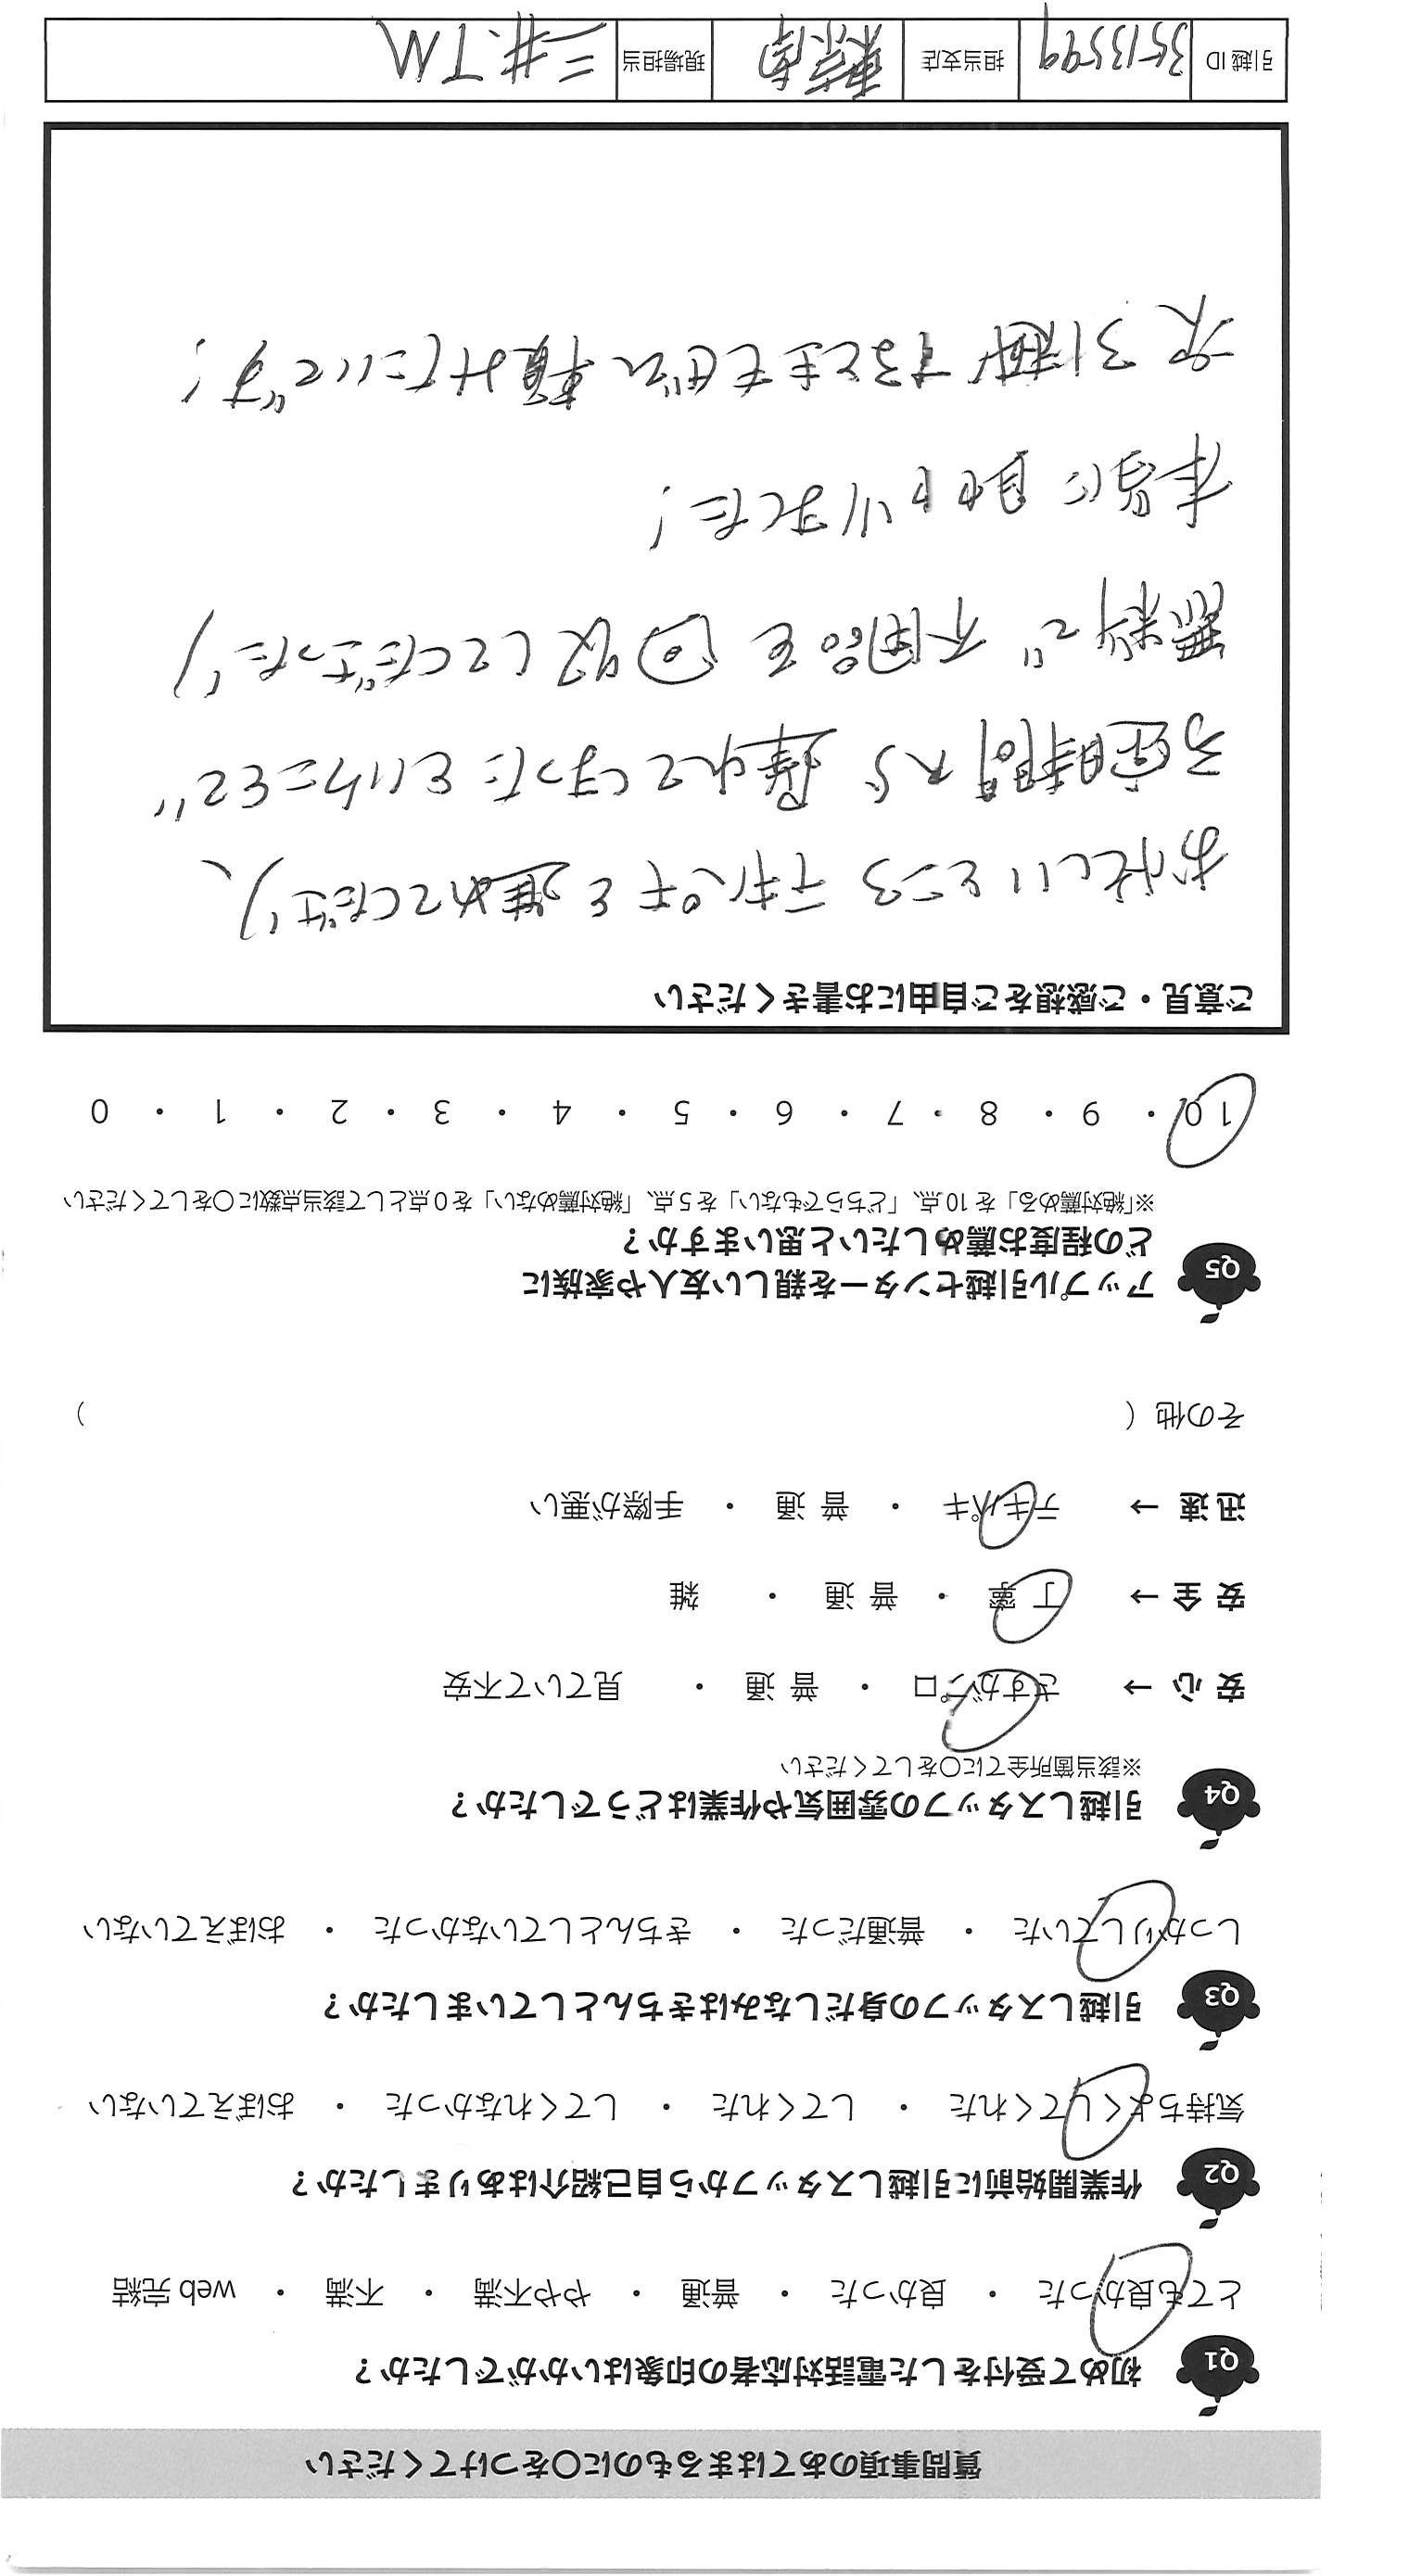 質問事項のあてはまるものに〇をつけてください
Q1 初めて受付をした電話対応者の印象はいかがでしたか？
とても良かった ・ 良かった ・ 普通 ・ やや不満 ・ 不満 ・ web 完結
Q2 作業開始前に引越しスタッフから自己紹介はありましたか？
気持ちよくしてくれた ・ してくれた ・ してくれなかった ・ おぼえていない
Q3 引越しスタッフの身だしなみはきちんとしていましたか？
しっかりしていた ・ 普通だった ・ きちんとしていなかった ・ おぼえていない
Q4 引越しスタッフの雰囲気や作業はどうでしたか？
※該当箇所全てに〇をしてください
安 心 → さすがプロ ・ 普 通 ・ 見ていて不安
安 全 → 丁 寧 ・ 普 通 ・ 雑
迅 速 → テキパキ ・ 普 通 ・ 手際が悪い
その他（ ）
Q5 アップル引越センターを親しい友人や家族に
どの程度お薦めしたいと思いますか？
※「絶対薦める」を 10 点、「どちらでもない」を 5 点、「絶対薦めない」を 0 点として該当点数に〇をしてください
10 ・ 9 ・ 8 ・ 7 ・ 6 ・ 5 ・ 4 ・ 3 ・ 2 ・ 1 ・ 0
ご意見・ご感想をご自由にお書きください
お忙しいところ テキパキと進めてくださり、
予定時間から 遅れてしまったということで
無料で 不用品を 回収してくださったり
本当に 助かりました！
次引越するときもぜひ頼みたいです！
引越 ID 3513599 担当支店 東京南 現場担当 三井.TM